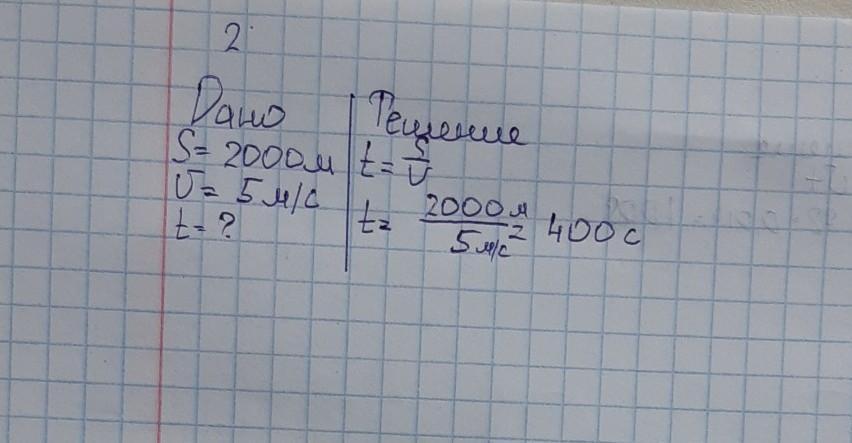 2.
Дано
S = 2000м
υ = 5 м/с
t = ?
Решение
t = S/υ
t = 2000м / 5 м/с = 400 с